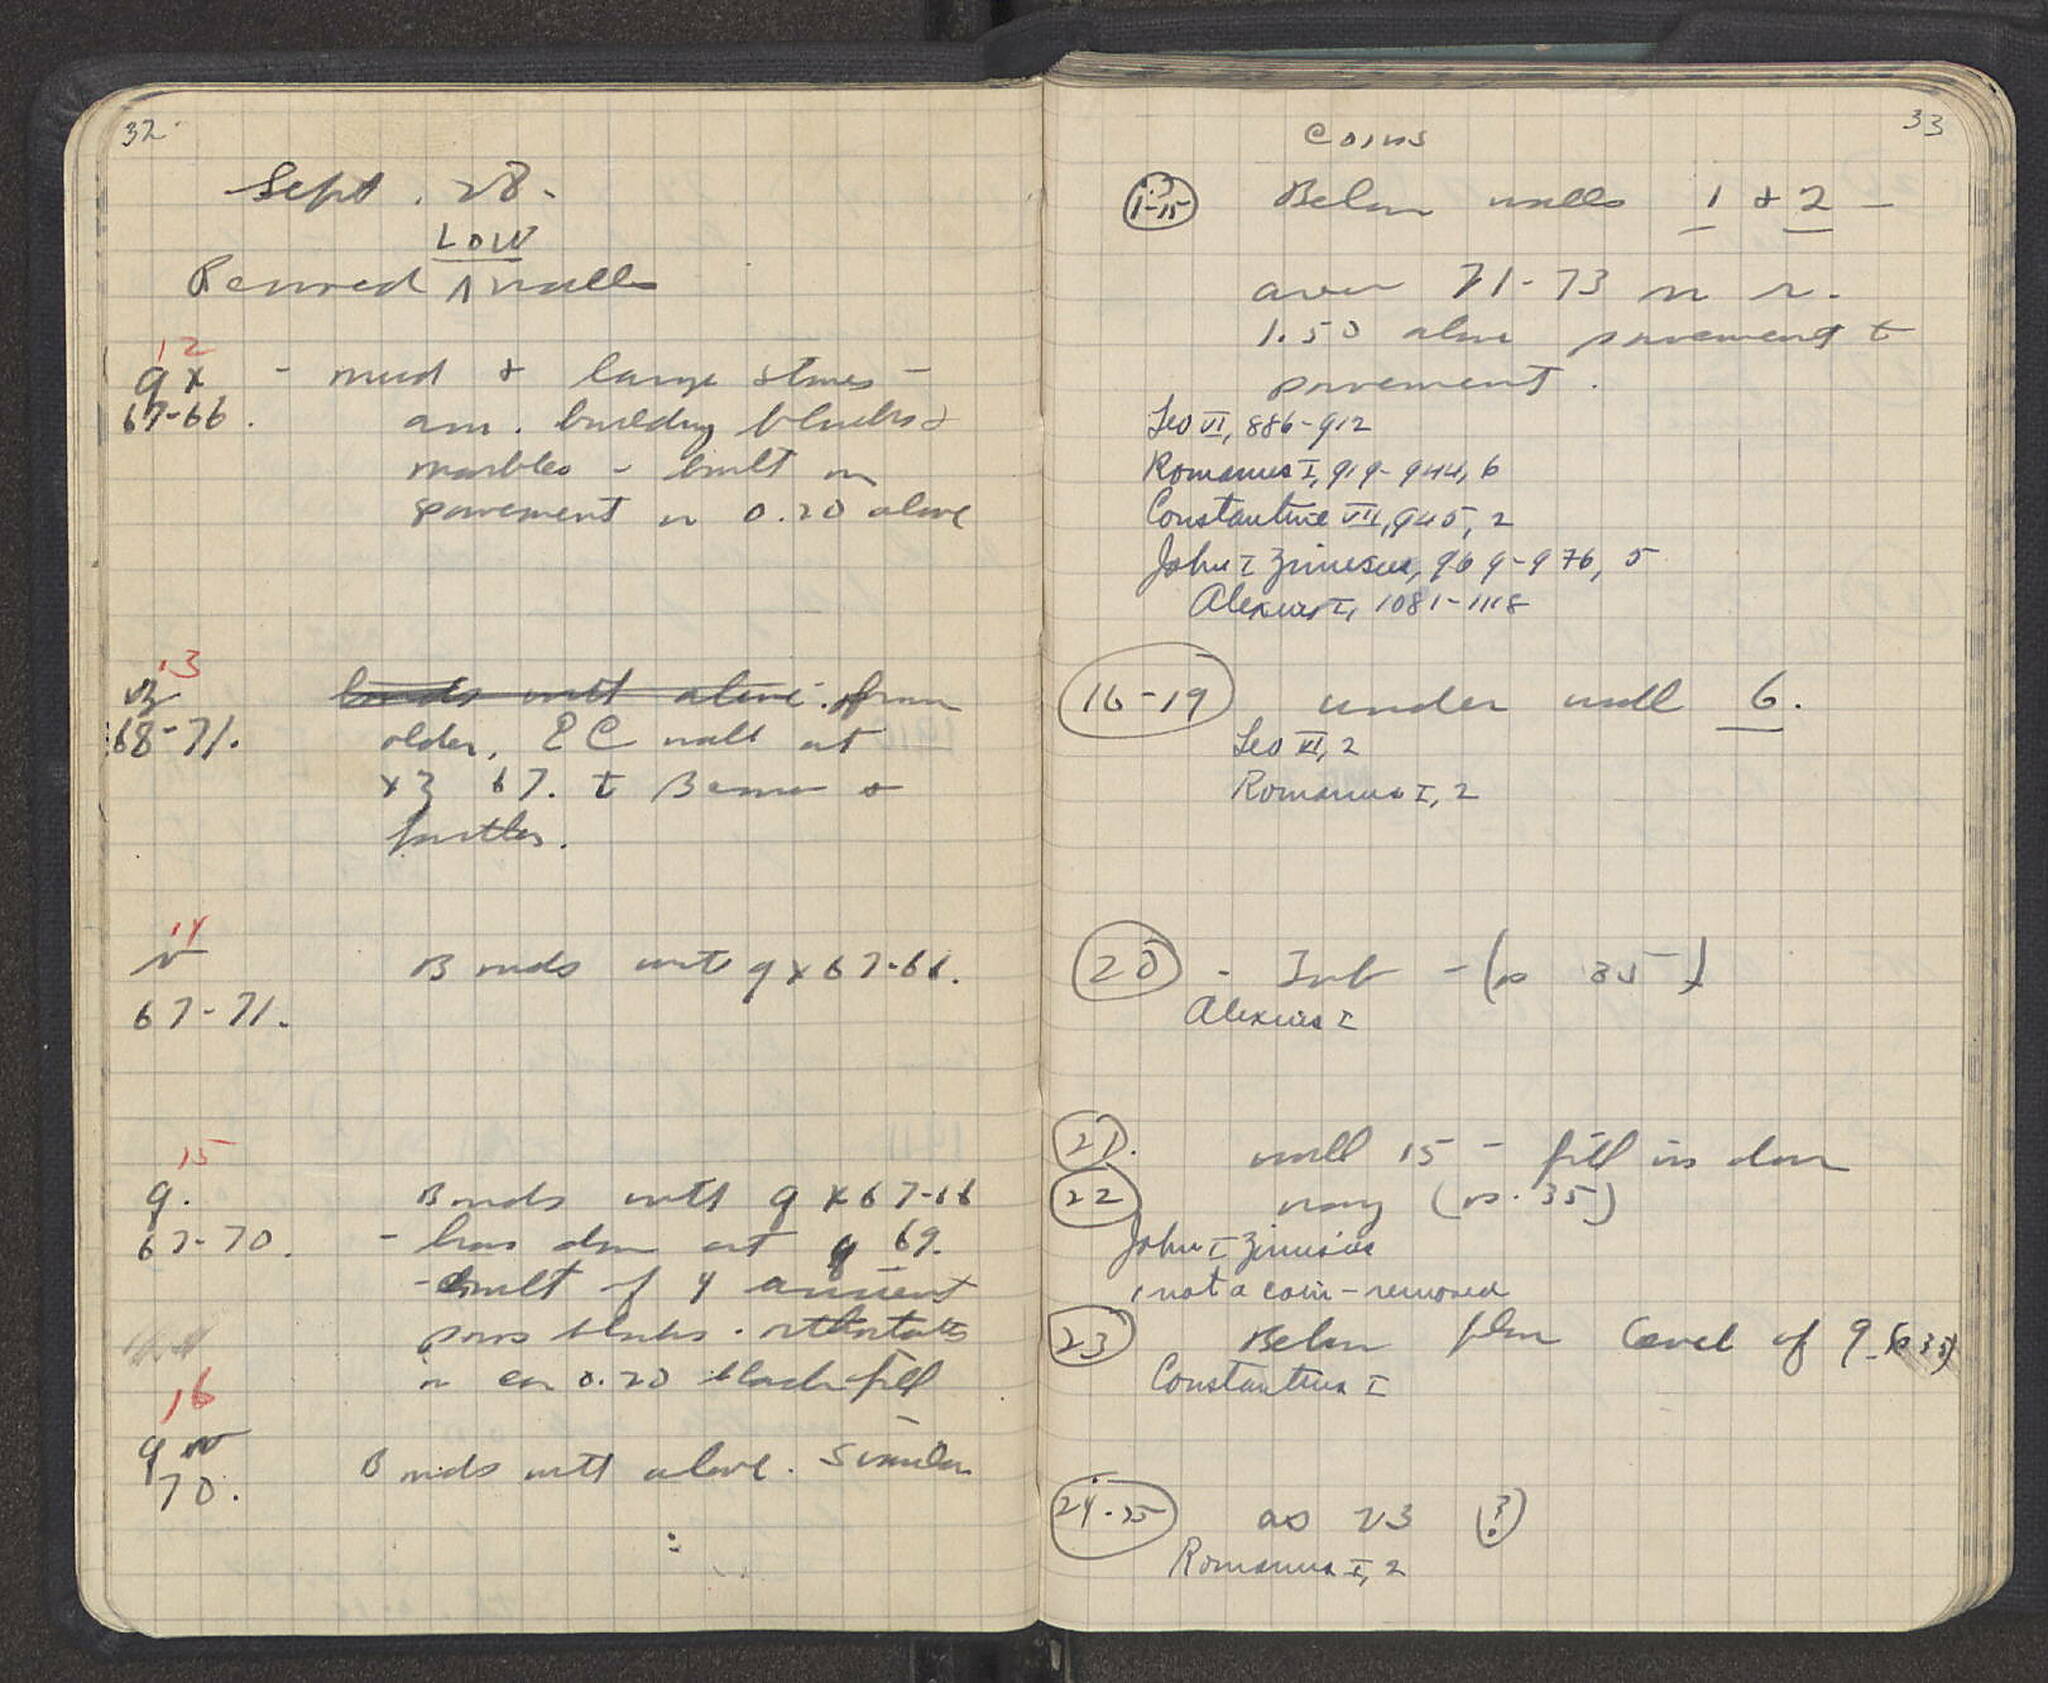 32
Sept. 28.
LOW
Removed ^ walls
12
qx - mud & large stones -
67-66. anc. building blocks &
marbles - built on
pavement or 0.20 above
13
vz bonds with above. from
68-71. older, EC wall at
xz 67. to Bema &
further.
14
v Bonds with qx67-66.
67-71.
15
q. Bonds with q x67-66
67-70. - has door at q 69.
- built of 4 ancient
poros blocks - orthostates
in ca 0.20 black fill
16
qv Bonds with above. Similar
70.
33
Coins
1-15 Below walls 1 & 2 -
over 71-73 n r.
1.50 above pavement to
pavement.
Leo VI, 886-912
Romanus I, 919-944, 6
Constantine VII, 945, 2
John I Zimisces, 969-976, 5
Alexius I, 1081-1118
16-19 under wall 6.
Leo VI, 2
Romanus I, 2
20 - - (p 35)
Alexius I
21. wall 15 - fill in door
22 way (p. 35)
John I Zimisces
1 not a coin - removed
23 Below floor level of 9 (p 35)
Constantius I
24-25 as 23 (?)
Romanus I, 2